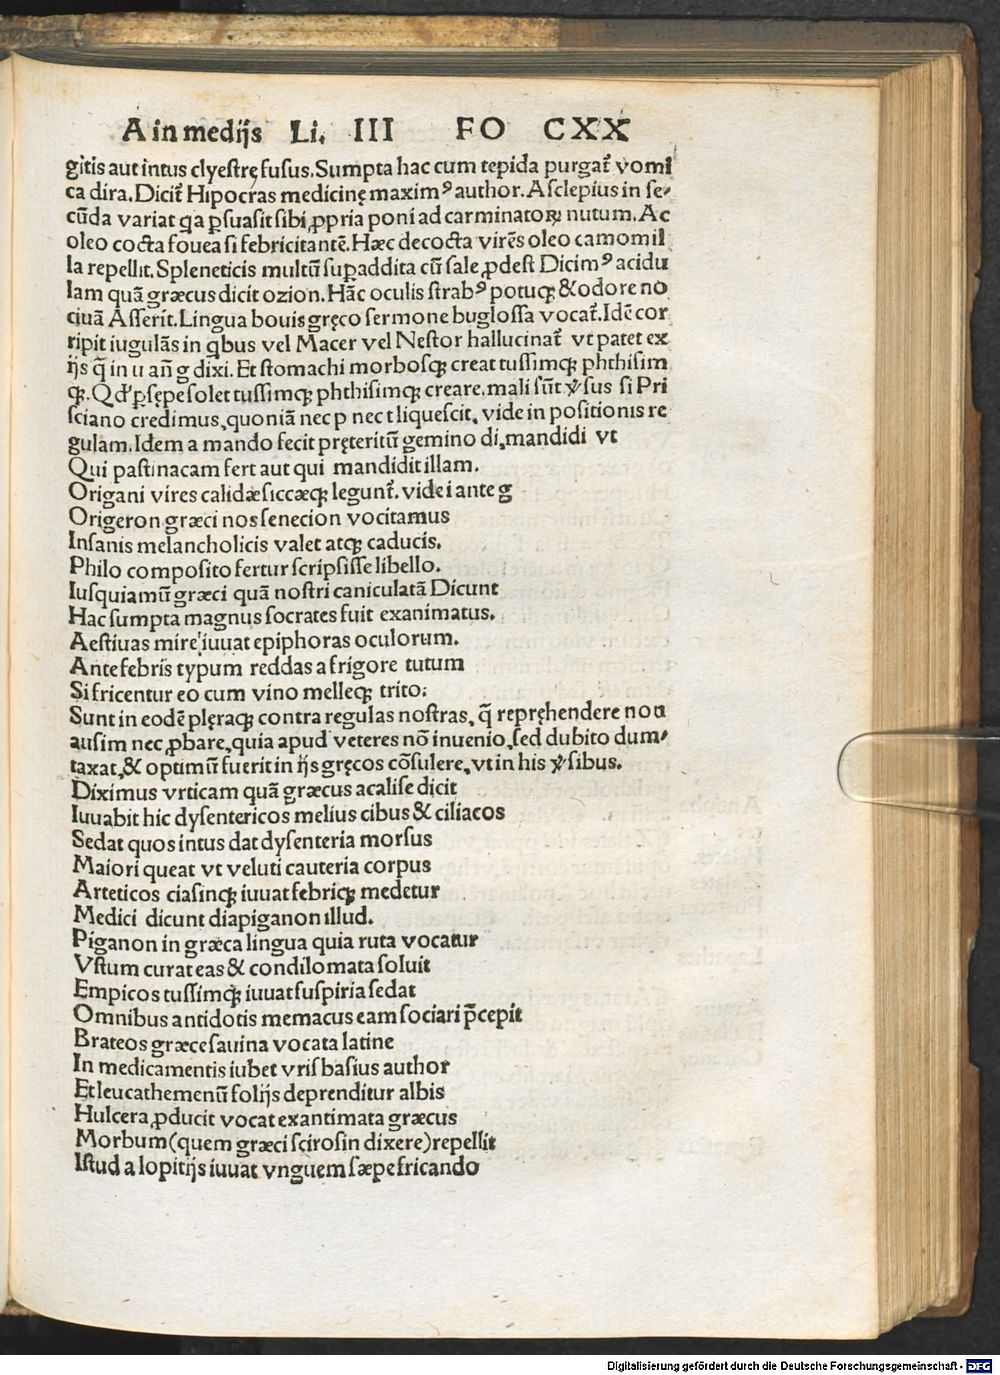 A in medijs Li. III FO CXX
gitis aut intus clyestrę fusus. Sumpta hac cum tepida purgat᷑ vomi
ca dira. Dicit᷑ Hipocras medicinę maximꝰ author. Asclepius in se⸗
cūda variat qa ꝑsuasit sibi ꝓpria poni ad carminatoꝝ nutum. Ac
oleo cocta fouea si febricitantē. Hæc decocta virēs oleo camomil
la repellit. Spleneticis multū suꝑaddita cū sale ꝓdest Dicimꝰ acidu
lam quā græcus dicit ozion. Hāc oculis strabꝰ potuqꝫ & odore no
ciuā Asserit. Lingua bouis gręco sermone buglossa vocat᷑. Idē cor
ripit iugulās in qbus vel Macer vel Nestor hallucinat᷑ vt patet ex
ijs q̄ in u an̄ g dixi. Et stomachi morbosqꝫ creat tussimqꝫ phthisim
qꝫ. Qđ ꝑsępe solet tussimqꝫ phthisimqꝫ creare. mali sūt v̓sus si Pri
sciano credimus, quoniā nec p nec t liquescit, vide in positionis re
gulam. Idem a mando fecit pręteritū gemino di, mandidi vt
Qui pastinacam fert aut qui mandidit illam.
Origani vires calidæ siccæqꝫ legunt᷑. vide i ante g
Origeron græci nos senecion vocitamus
Insanis melancholicis valet atqꝫ caducis.
Philo composito fertur scripsisse libello.
Iusquiamū græci quā nostri caniculatā Dicunt
Hac sumpta magnus socrates fuit exanimatus.
Aestiuas mire iuuat epiphoras oculorum.
Ante febris typum reddas a frigore tutum
Si fricentur eo cum vino melleqꝫ trito:
Sunt in eodē plęraqꝫ contra regulas nostras, q̄ repręhendere non
ausim nec ꝓbare, quia apud veteres nō inuenio, sed dubito dum⸗
taxat, & optimū fuerit in ijs gręcos cōsulere, vt in his v̓sibus.
Diximus vrticam quā græcus acalise dicit
Iuuabit hic dysentericos melius cibus & ciliacos
Sedat quos intus dat dysenteria morsus
Maiori queat vt veluti cauteria corpus
Arteticos ciasinqꝫ iuuat febriqꝫ medetur
Medici dicunt diapiganon illud.
Piganon in græca lingua quia ruta vocatur
Vstum curat eas & condilomata soluit
Empicos tussimqꝫ iuuat suspiria sedat
Omnibus antidotis memacus eam sociari p̄cepit
Brateos græce sauina vocata latine
In medicamentis iubet vris basius author
Et leucathemenū folijs deprenditur albis
Hulcera ꝓducit vocat exantimata græcus
Morbum (quem græci scirosin dixere) repellit
Istud alopitijs iuuat vnguem sæpe fricando
Digitalisierung gefördert durch die Deutsche Forschungsgemeinschaft - DFG